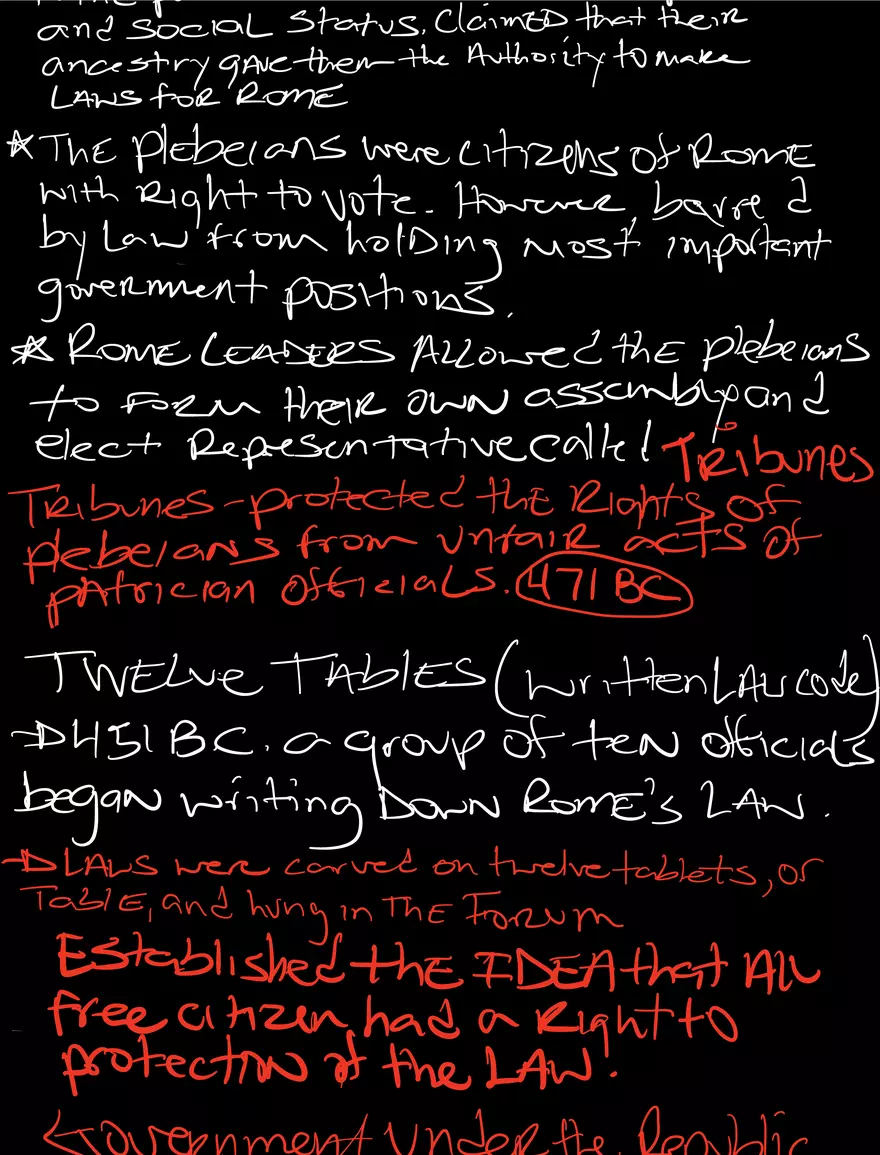 and social status. Claimed that their
ancestry gave them the Authority to make
LAWS for ROME
* THE plebeians were citizens of ROME
with Right to vote. However, barred
by Law from holding most important
government positions.
* ROME LEADERS Allowed the plebeians
to form their own assembly and
elect Representative called Tribunes
Tribunes - protected the Rights of
plebeians from unfair acts of
patrician officials. 471 BC
TWELVE TABLES (written LAW code)
→ 451 BC. a group of ten officials
began writing DOWN ROME'S LAW.
→ LAWS were carved on twelve tablets, or
TABLE, and hung in THE Forum
Established the IDEA that All
free citizen had a Right to
protection of the LAW!
Government under the Republic